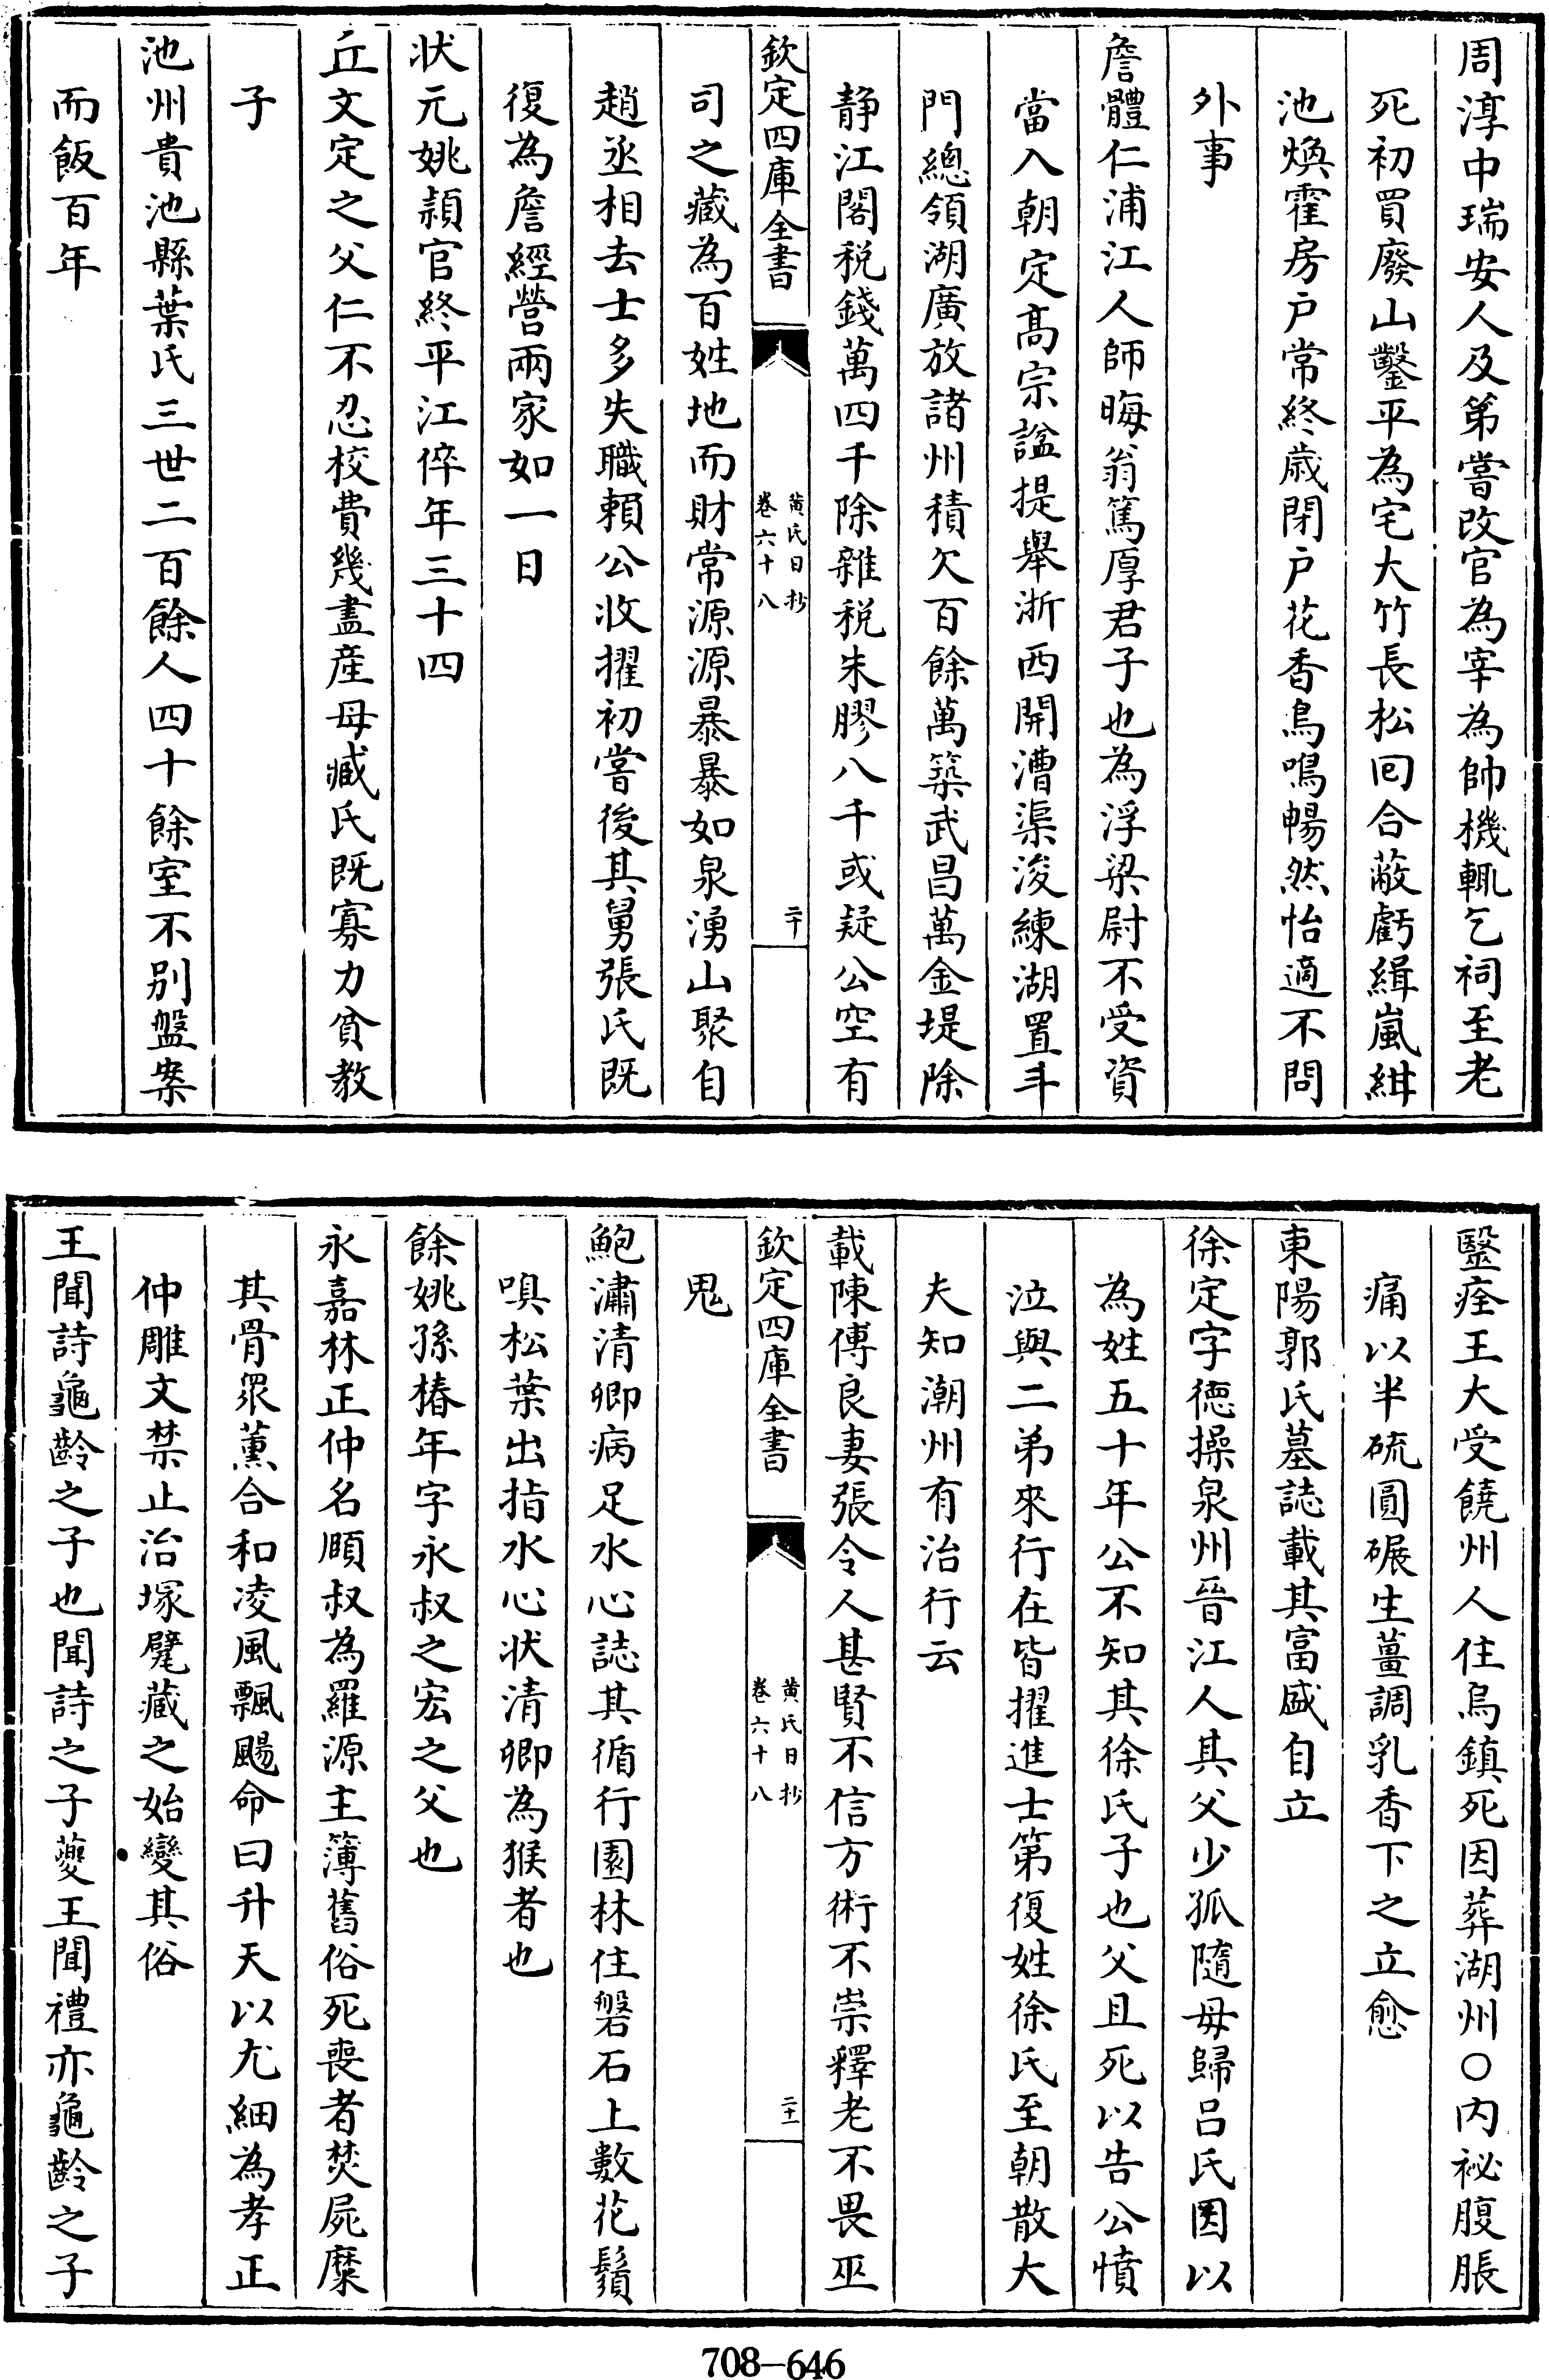 周淳中瑞安人及第嘗改官為宰為帥機輒乞祠至老
死初買廢山鑿平為宅大竹長松回合蔽虧緝嵐紺
池煥霍房戶常終歳閉戶花香鳥鳴暢然怡適不問
外事
詹體仁浦江人師晦翁篤厚君子也為浮梁尉不受資
當入朝定髙宗諡提舉浙西開漕渠浚練湖置斗
門總領湖廣放諸州積欠百餘萬築武昌萬金堤除
静江閣税錢萬四千除雜税朱膠八千或疑公空有
欽定四庫全書
黄氏日抄
卷六十八
二十
司之藏為百姓地而財常源源暴暴如泉湧山聚自
趙丞相去士多失職賴公收擢初嘗後其舅張氏既
復為詹經營兩家如一日
状元姚頴官終平江倅年三十四
丘文定之父仁不忍校費幾盡産母臧氏既寡力貧教
子
池州貴池縣葉氏三世二百餘人四十餘室不别盤案
而飯百年
毉痊王大受饒州人住烏鎮死因葬湖州○内祕腹脹
痛以半硫圓碾生薑調乳香下之立愈
東陽郭氏墓誌載其富盛自立
徐定字徳操泉州晉江人其父少孤隨母歸吕氏因以
為姓五十年公不知其徐氏子也父且死以告公憤
泣與二弟來行在皆擢進士第復姓徐氏至朝散大
夫知潮州有治行云
載陳傅良妻張令人甚賢不信方術不崇釋老不畏巫
欽定四庫全書
黄氏日抄
卷六十八
二十一
鬼
鮑潚清卿病足水心誌其循行園林住磐石上數花鬚
嗅松葉出指水心状清卿為猴者也
餘姚孫椿年字永叔之宏之父也
永嘉林正仲名頤叔為羅源主簿舊俗死喪者焚屍糜
其骨衆薫合和凌風飄颺命曰升天以尤細為孝正
仲雕文禁止治塚甓藏之始變其俗
王聞詩龜齡之子也聞詩之子夔王聞禮亦龜齡之子
708-646